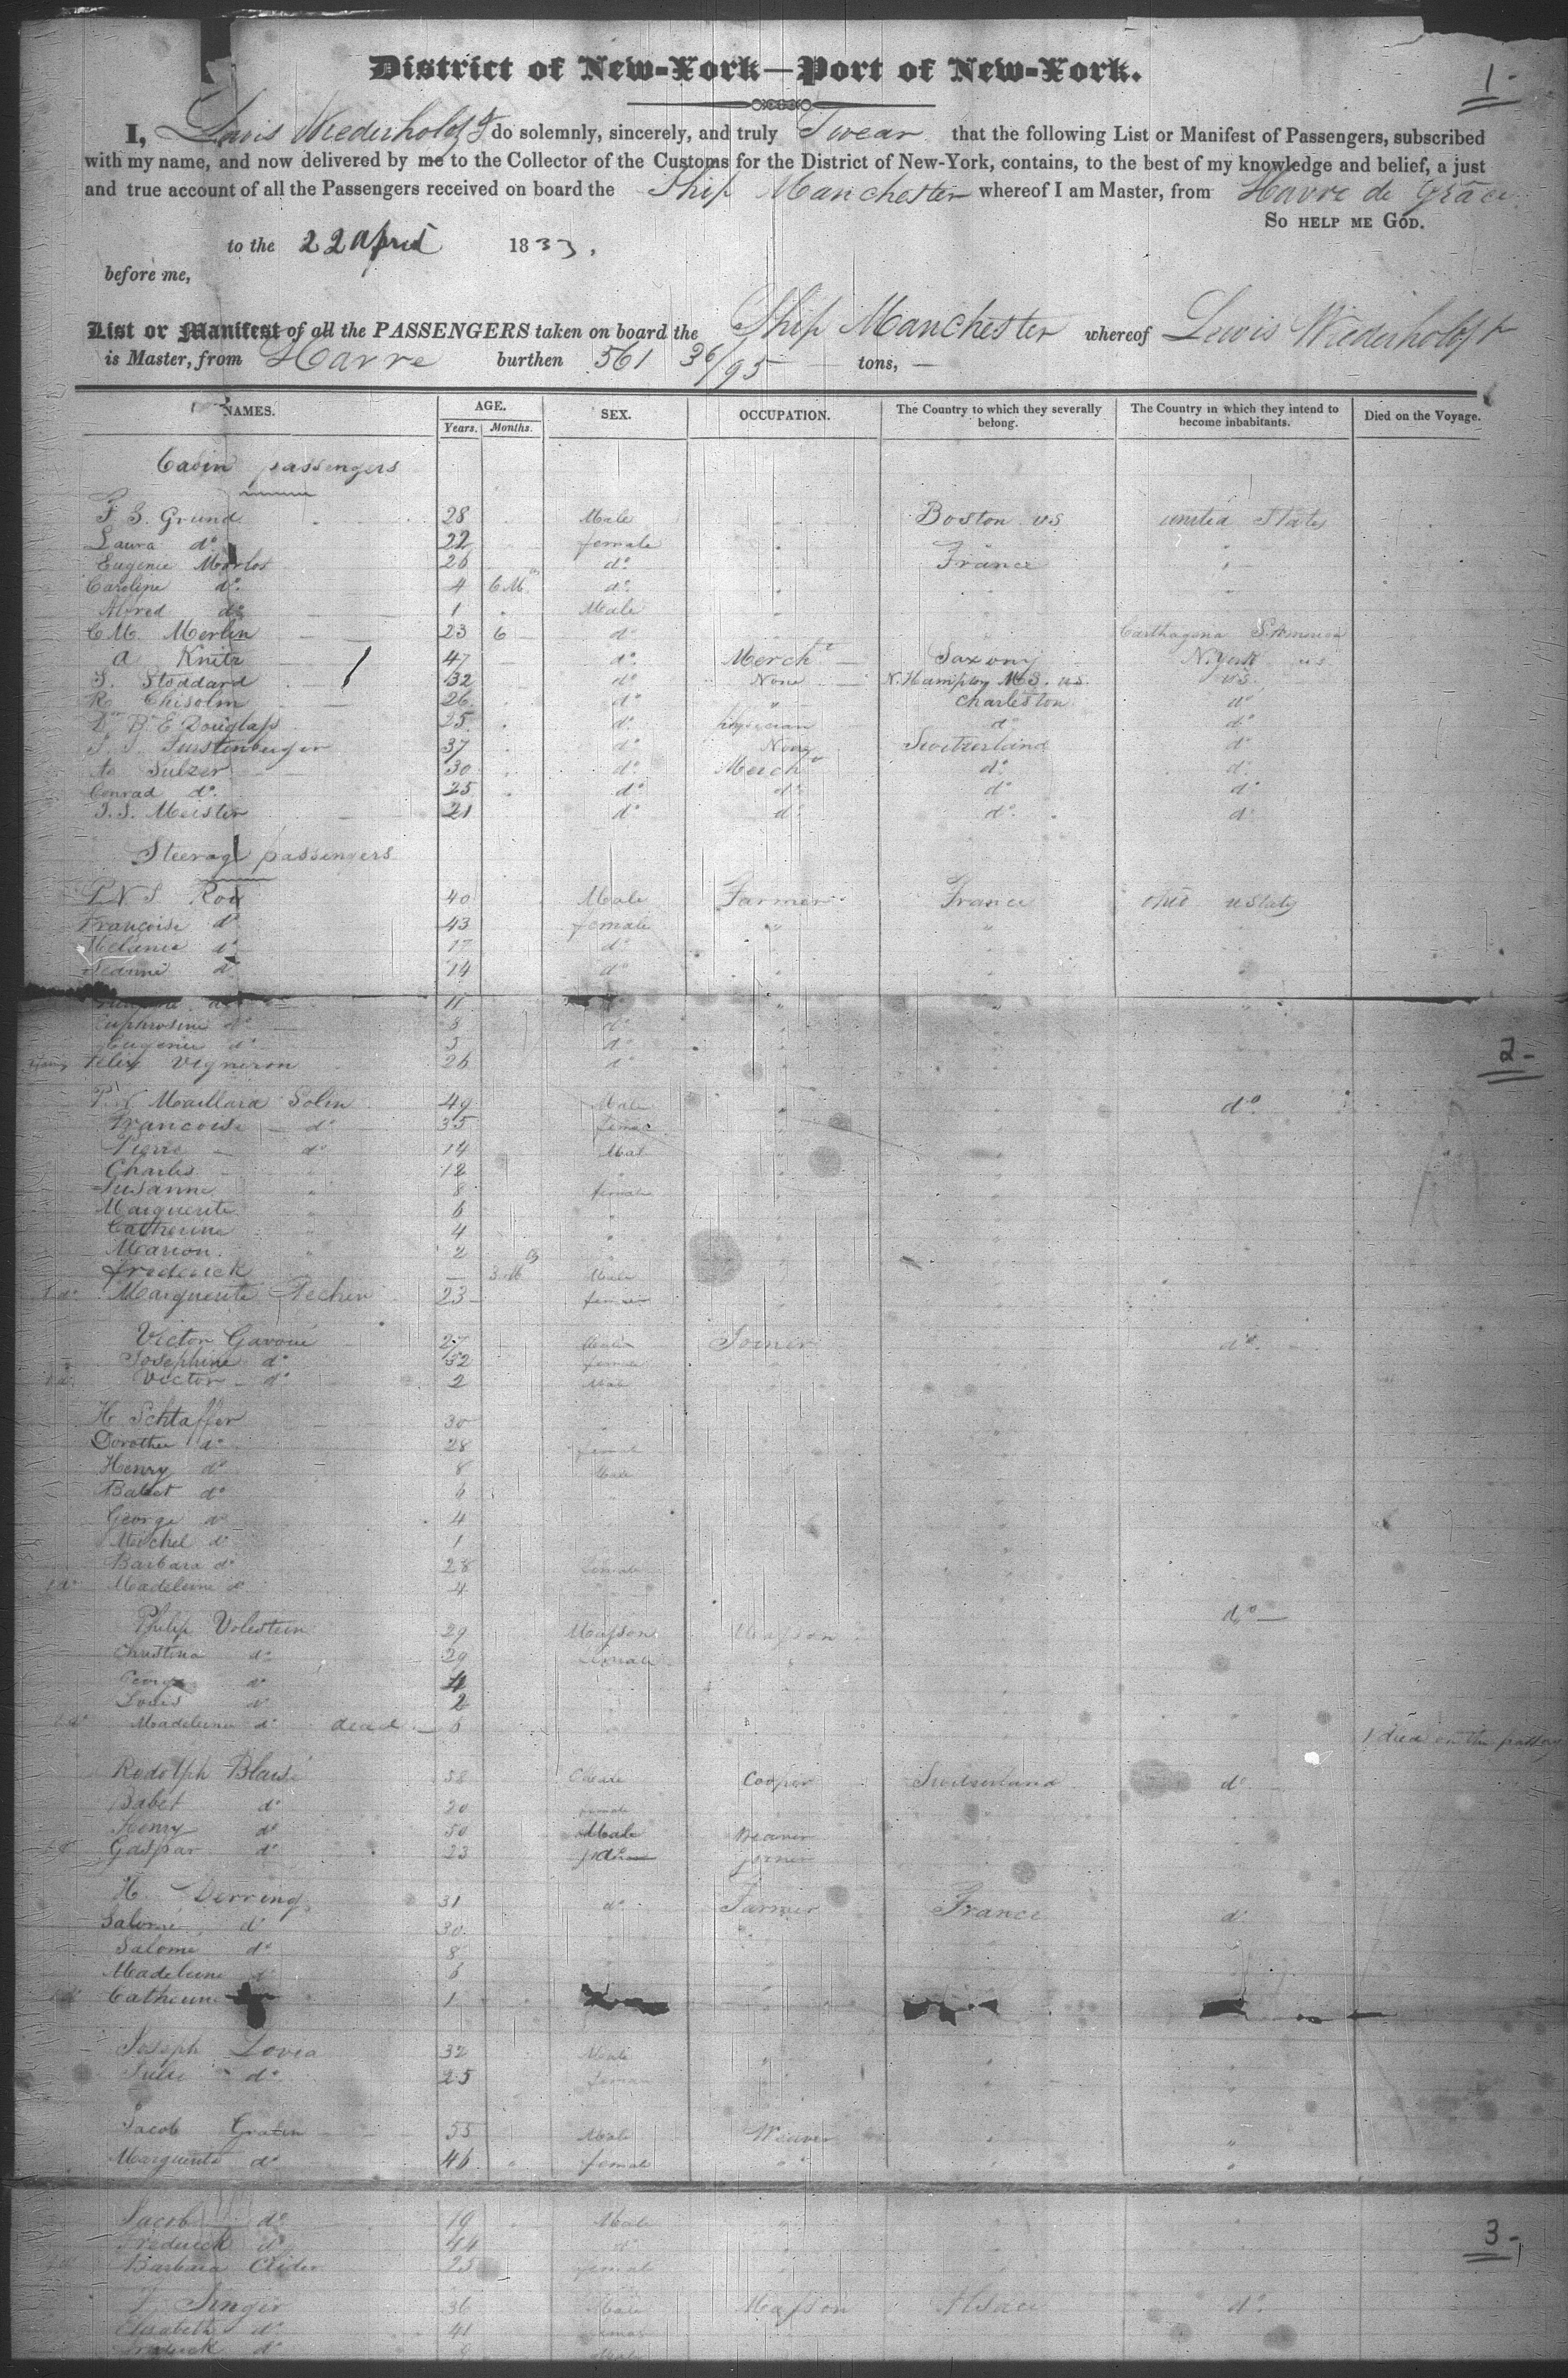 District of New-York—Port of New-York.
1-
I, Lewis Wiederholdt do solemnly, sincerely, and truly Swear that the following List or Manifest of Passengers, subscribed
with my name, and now delivered by me to the Collector of the Customs for the District of New-York, contains, to the best of my knowledge and belief, a just
and true account of all the Passengers received on board the Ship Manchester whereof I am Master, from Havre de Grâce
So help me God.
to the 22 April 1833.
before me,
List or Manifest of all the PASSENGERS taken on board the Ship Manchester whereof Lewis Wiederholdt
is Master, from Havre burthen 561 36/95 tons, —
NAMES. AGE. SEX. OCCUPATION. The Country to which they severally belong. The Country in which they intend to become inhabitants. Died on the Voyage.
Years. Months.
Cabin passengers
F. S. Grund 28 Male Boston US United States
Laura do 22 female "
Eugenie Morlot 26 do France "
Caroline do 4 6 Ms do
Alfred do 1 Male
C M. Merlin 23 6 do Carthagena
A Knitz 47 do Mercht Saxony N. York us
S. Stoddard 32 do None N. Hampton MS. us. us
R Chisolm 26 do " Charleston do
Dr B. E. Douglass 25 do physician do do
J. J. Furstenberger 37 do None Switzerland do
A. Sulzer 30 do Mercht do do
Conrad do 25 do do do do
J. S. Meister 21 do do do do
Steerage passengers
P N S Roy 40 Male Farmer France Ohio U States
Françoise do 43 female " "
Melanie do 17 do
Jeanne do 14 do
do 11
Euphrosine do 8 do
Eugenie do 3 do
2-
Felix Vigneron 26 do
P. N Maillard Solin 49 Male do
Francoise do 35 femal
Pierre do 14 Mal
Charles 12
Susanne 8 female
Marguerite 6
Catherine 4
Marion 2
Frederick — 3 Ms Male
Marguerite Pechin 23
Victor Gavoni 27 Male Joiner do
Josephine do 32 female
Victor do 2 Mal
H Schtaffer 30
Dorothee do 28 femal
Henry do 8 Male
Babet do 6
George do 4
Michel do 1
Barbara do 28 female
Madeleine do 4
Philip Volestein 29 Masson Masson do
Christina do 29 female
George do 4
Louis do 2
Madeleine do dead 6 1 died on the passage
Rodolph Blaise 58 Male Cooper Switserland do
Babet do 20 female
Henry do 50 Male Weaver
Gaspar do 23 do joiner
H. Derring 31 do Farmer France do
Salomé do 30
Salomé do 8
Madeleine do 6
Catherine 1
Joseph Lovea 32 Male
Julie do 25 femal
Jacob Gratin 55 Male Weaver
Marguerite do 46 female
Jacob do 19 Male
3-
Frederick do 44
Barbara 25 female
J. Singer 36 Male Masson Alsace do
Elisabeth do 41 femal
Frederick do 9 Male